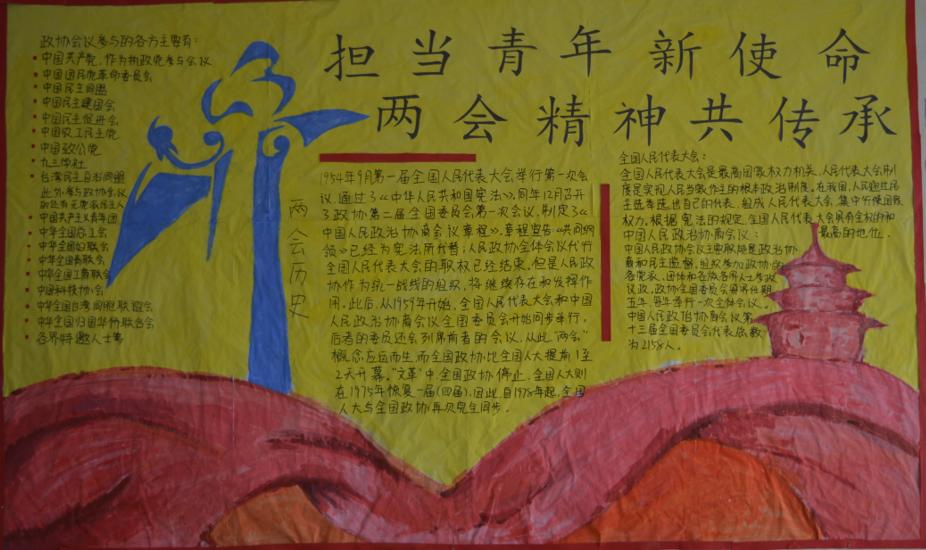 担当青年新使命
两会精神共传承
政协会议参与的各方主要有:
中国共产党,作为执政党参与会议
中国国民党革命委员会
中国民主同盟
中国民主建国会
中国民主促进会
中国农工民主党
中国致公党
九三学社
台湾民主自治同盟
此外参与政协会议
的还有无党派民主人
中国共产主义青年团
中华全国总工会
中华全国妇联会
中华全国青联会
中华全国工商联会
中国科技协会
中华全国台湾同胞联谊会
中华全国归国华侨联合会
各界特邀人士等
两会历史
1954年9月第一届全国人民代表大会举行第一次会
议通过了《中华人民共和国宪法》,同年12月召开
了政协第二届全国委员会第一次会议,制定了《
中国人民政治协商会议章程》,章程宣告《共同纲
领》已经为宪法所代替;人民政协全体会议代行
全国人民代表大会的职权已经结束,但是人民政
协作为统一战线的组织,将继续存在和发挥作
用。此后,从1959年开始,全国人民代表大会和中国
人民政治协商会议全国委员会开始同步举行,
后者的委员还会列席前者的会议,从此“两会”
概念应运而生,而全国政协比全国人大提前1至
2天开幕。“文革”中,全国政协停止,全国人大则
在1975年恢复一届(四届),因此,自1978年起,全国
人大与全国政协再次完全同步。
全国人民代表大会:
全国人民代表大会是最高国家权力机关。人民代表大会制
度是实现人民当家作主的根本政治制度。在我国,人民通过民
主选举选出自己的代表,组成人民代表大会,集中行使国家
权力,根据宪法的规定,全国人民代表大会具有全权的和
最高的地位。
中国人民政治协商会议:
中国人民政协会议主要职能是政治协
商和民主监督,组织参加政协的
各党派、团体和各族各界人士参政
议政,政协全国委员会每界任期
五年,每年举行一次全体会议。
中国人民政治协商会议第
十三届全国委员会代表总数
为2158人。